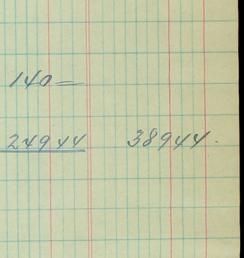 140=
24944 38944.